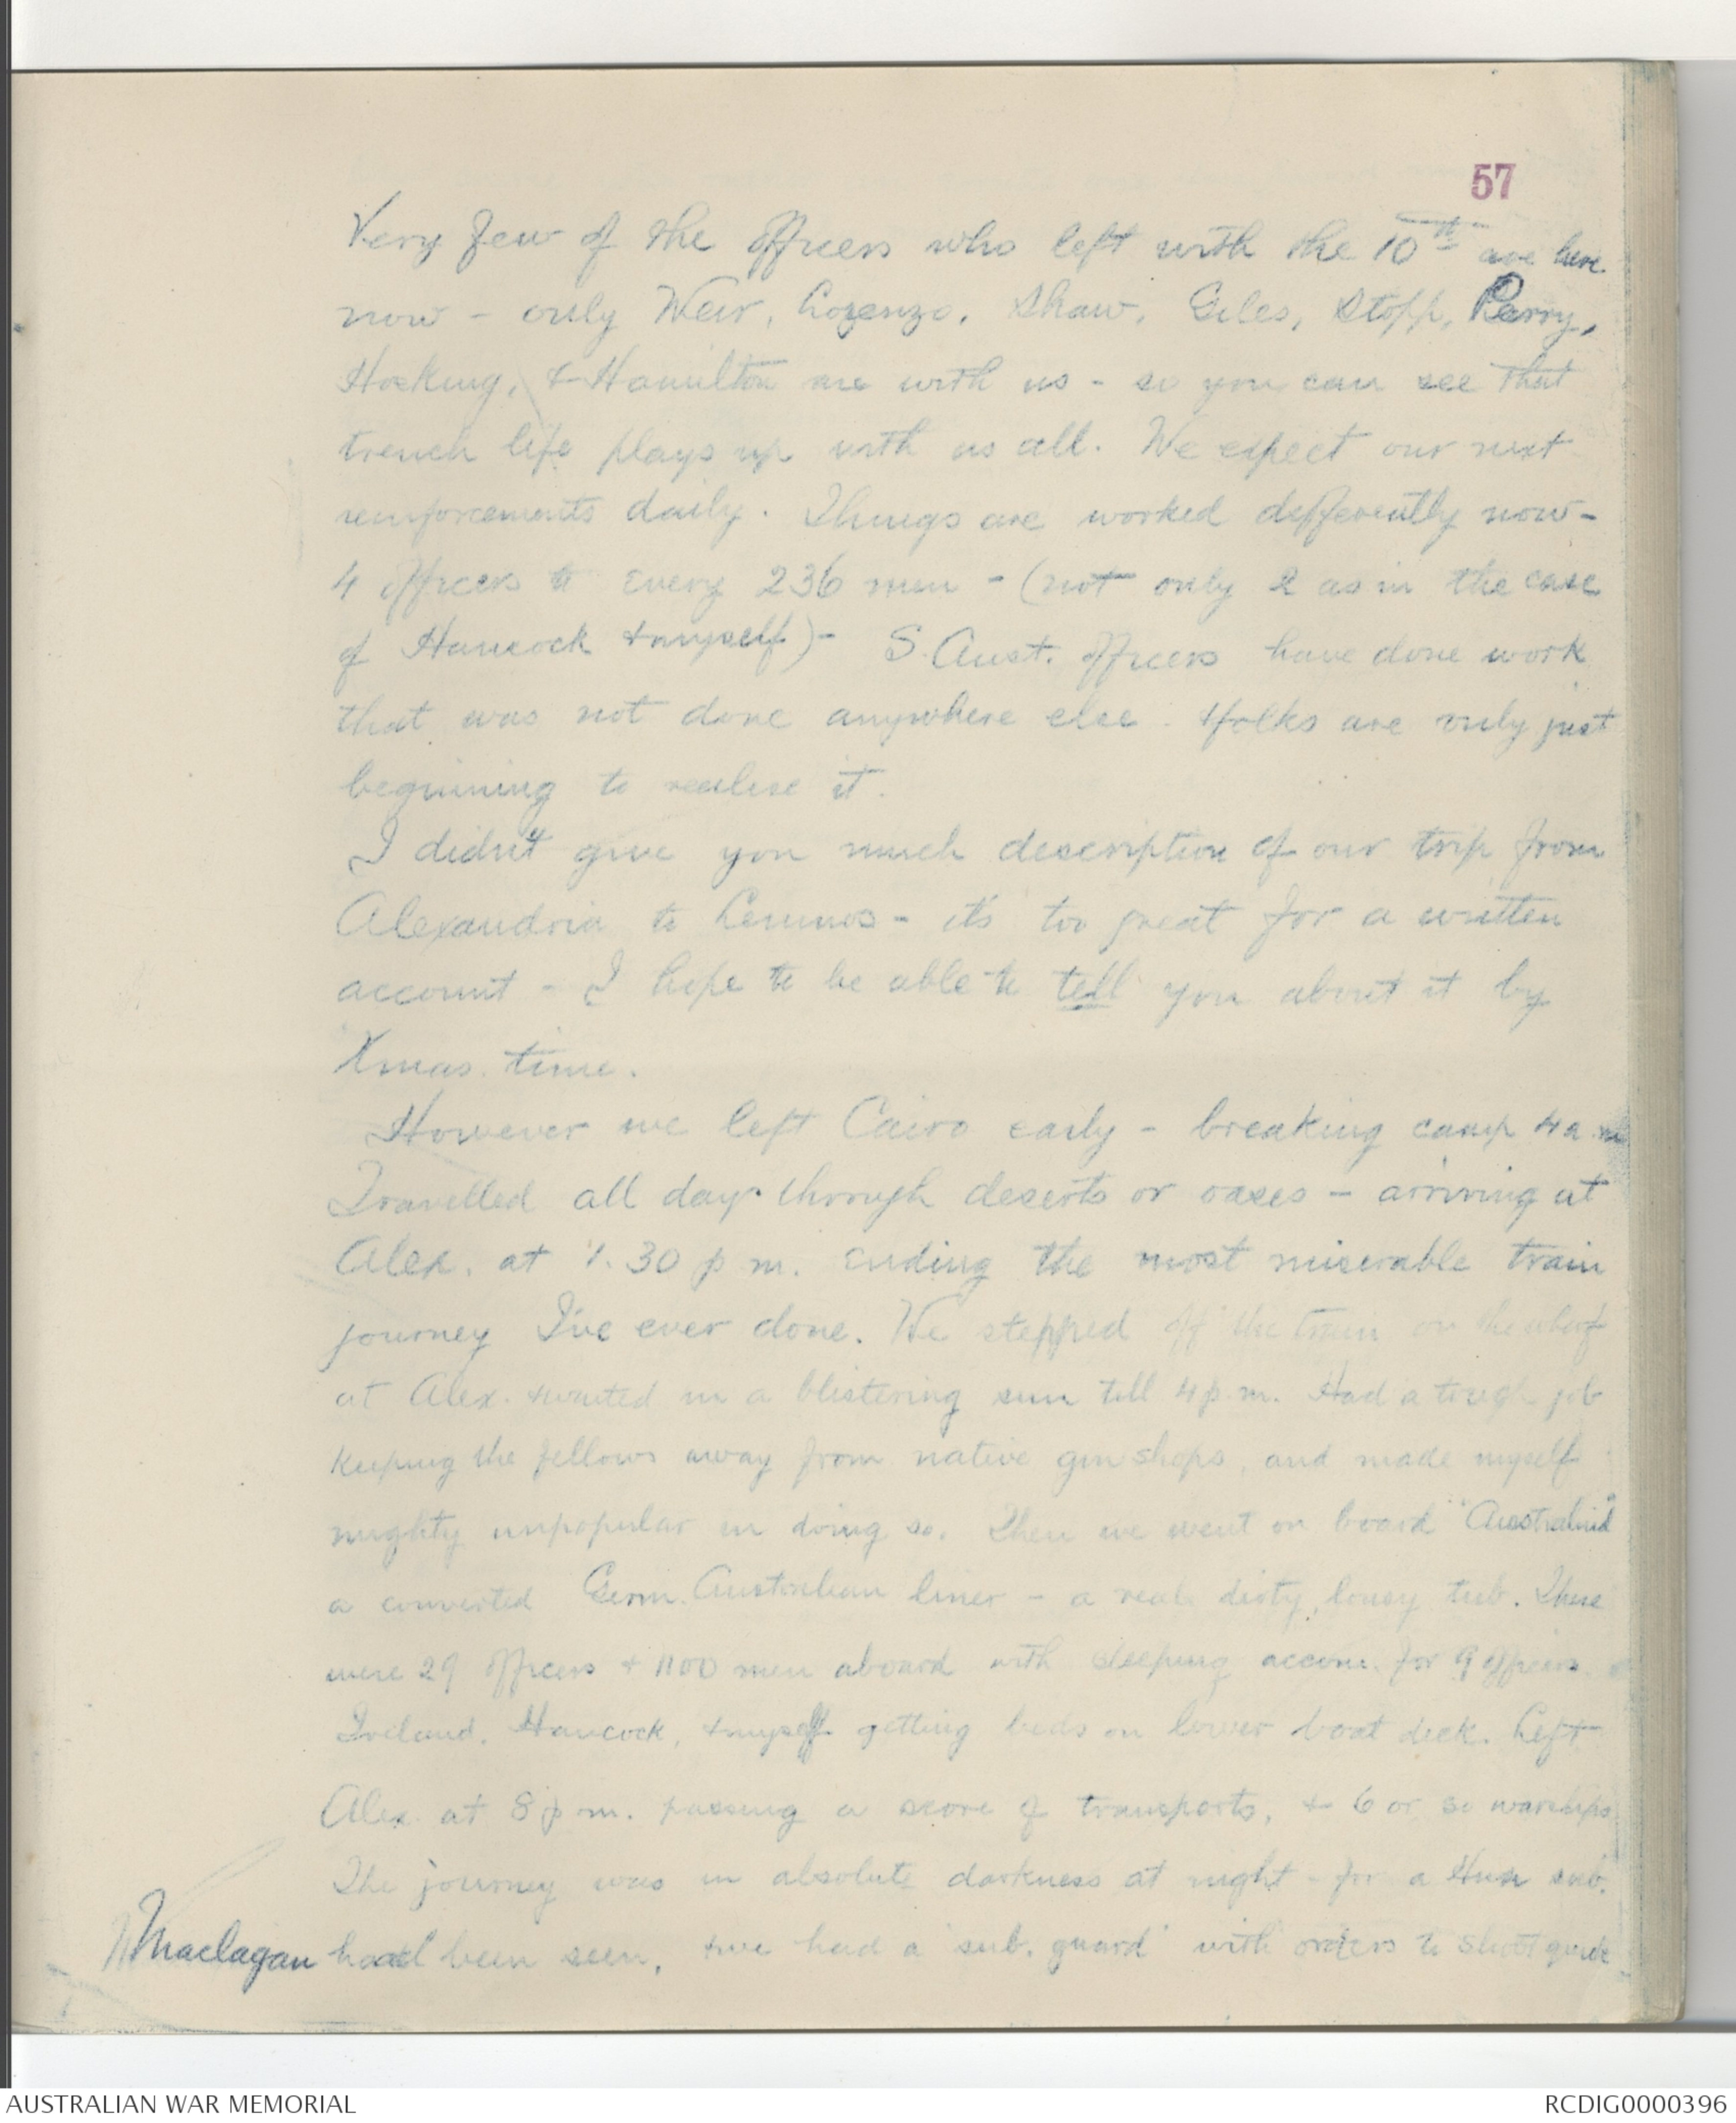 57
Very few of the officers who left with the 10th are here
now - only Weir, Lorenzo, Shaw, Giles, Stopp, Perry,
Hocking, & Hamilton are with us - so you can see that
trench life plays up with us all. We expect our next
reinforcements daily. Things are worked differently now -
4 officers to every 236 men - (not only 2 as in the case
of Hancock & myself) - S. Aust. officers have done work
that was not done anywhere else & folks are only just
beginning to realise it.
I didn't give you much description of our trip from
Alexandria to Lemnos - it's too great for a written
account - I hope to be able to tell you about it by
Xmas time.
However we left Cairo early - breaking camp 4 a.m
Travelled all day through deserts or oases - arriving at
Alex. at 1.30 p m. ending the most miserable train
journey I've ever done. We stepped off the train on the wharf
at Alex. & waited in a blistering sun till 4 p.m. Had a tough job
keeping the fellows away from native gin shops, and made myself
mighty unpopular in doing so. Then we went on board "Australind"
a converted Germ. Australian liner - a real dirty, lousy tub. There
were 29 officers & 1100 men aboard with sleeping accom. for 9 officers
Ireland, Hancock, & myself getting beds on lower boat deck. Left
Alex at 8 p m. passing a score of transports, & 6 or so warships
The journey was in absolute darkness at night - for a Hun sub.
Maclagan had been seen, & we had a 'sub. guard' with orders to shoot
AUSTRALIAN WAR MEMORIAL
RCDIG0000396